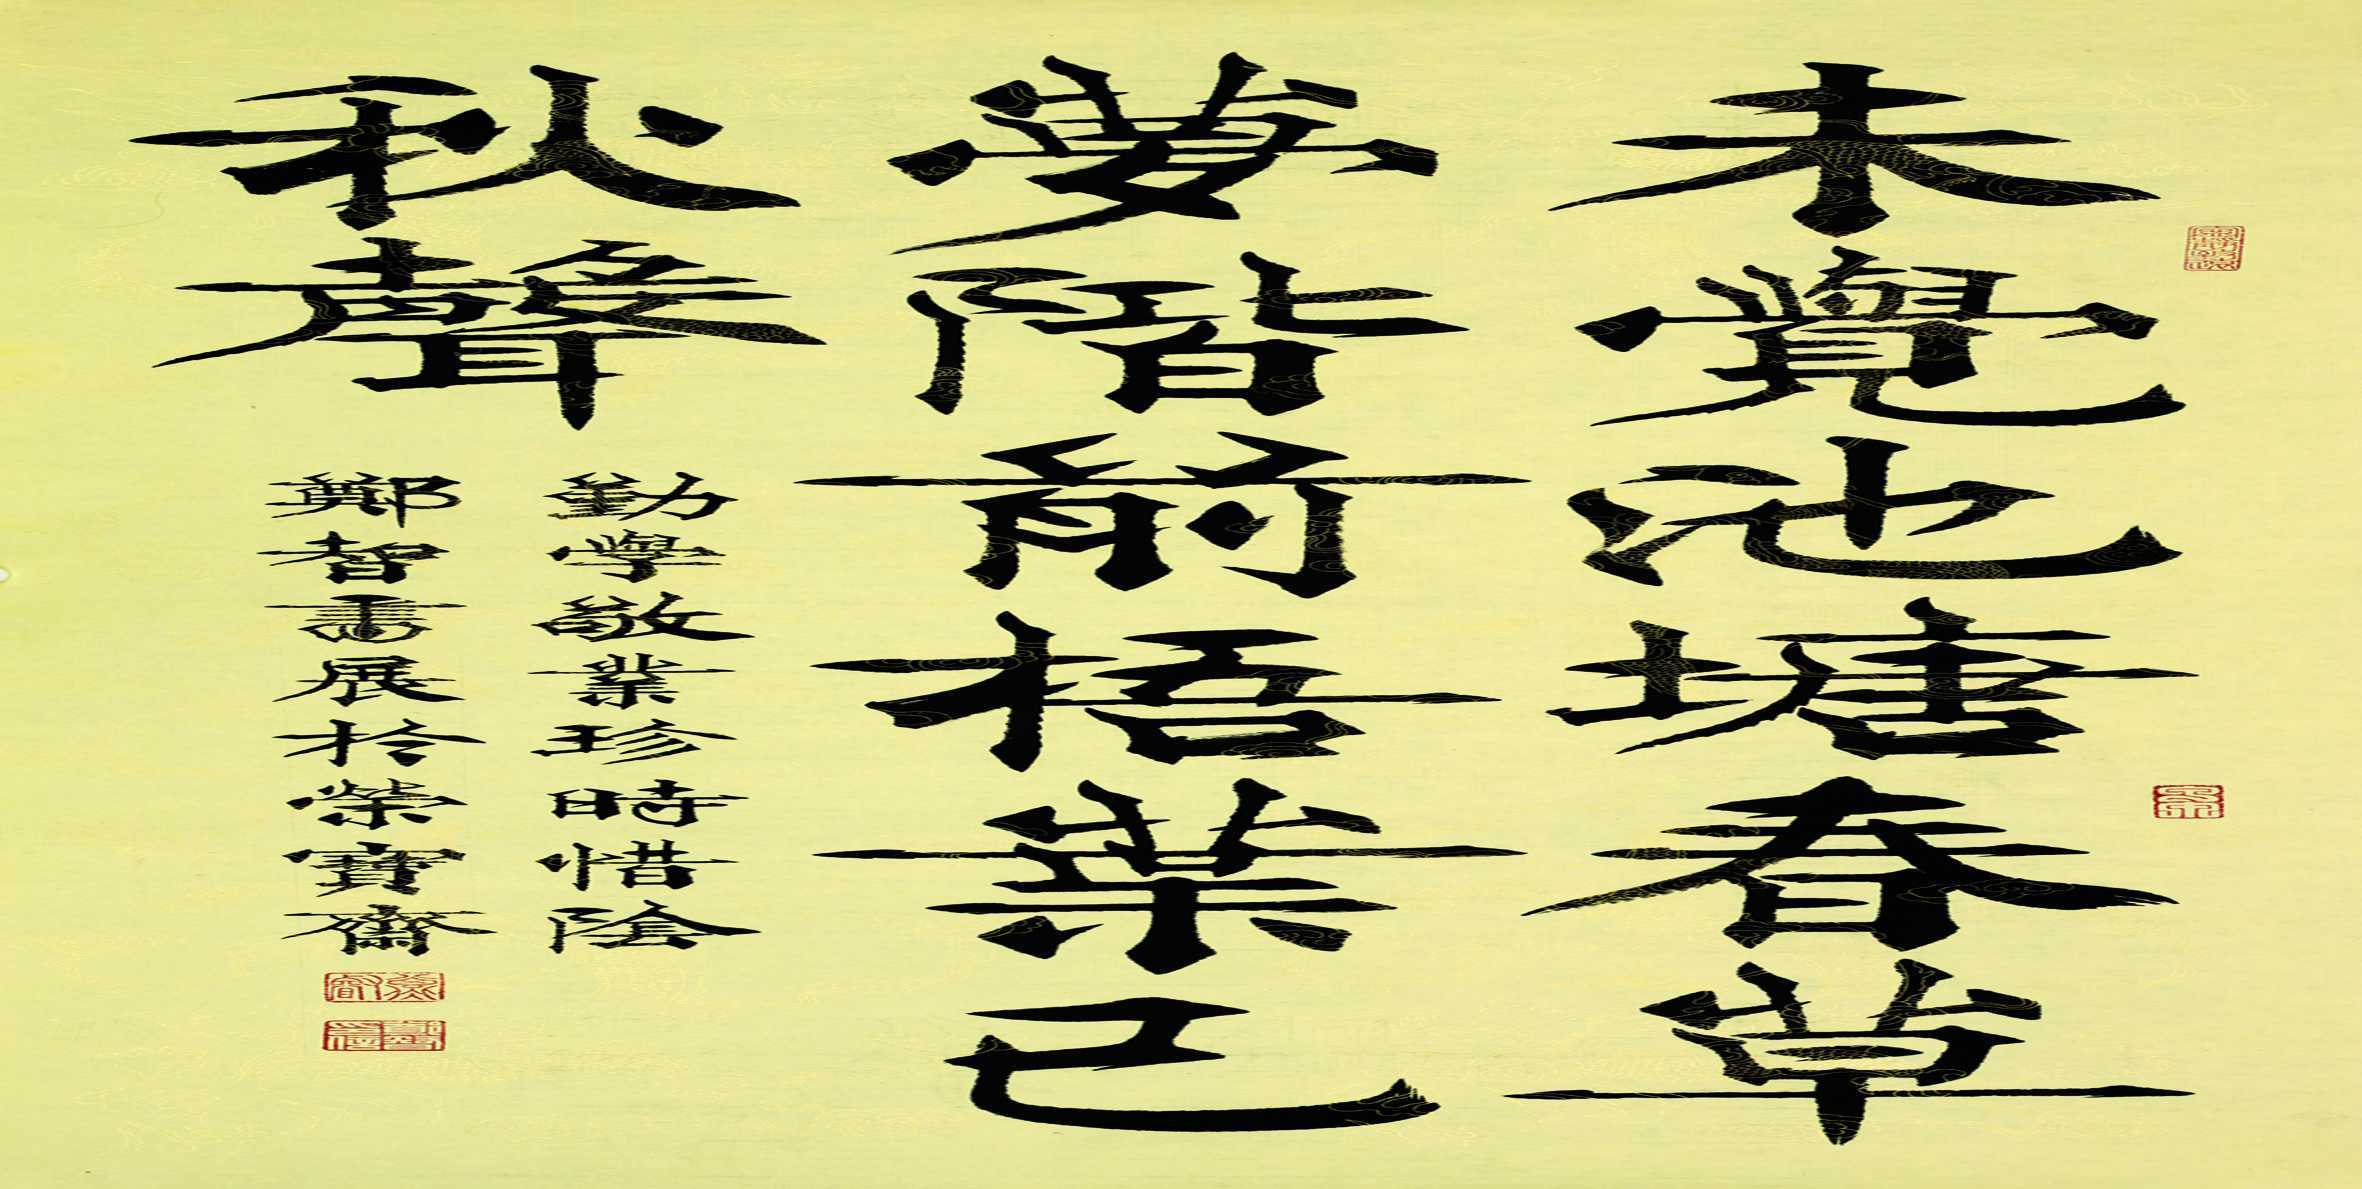 未覺池塘春草
夢階前梧葉已
秋聲
勤學敬業珍時惜陰
鄭智書展於榮寶齋